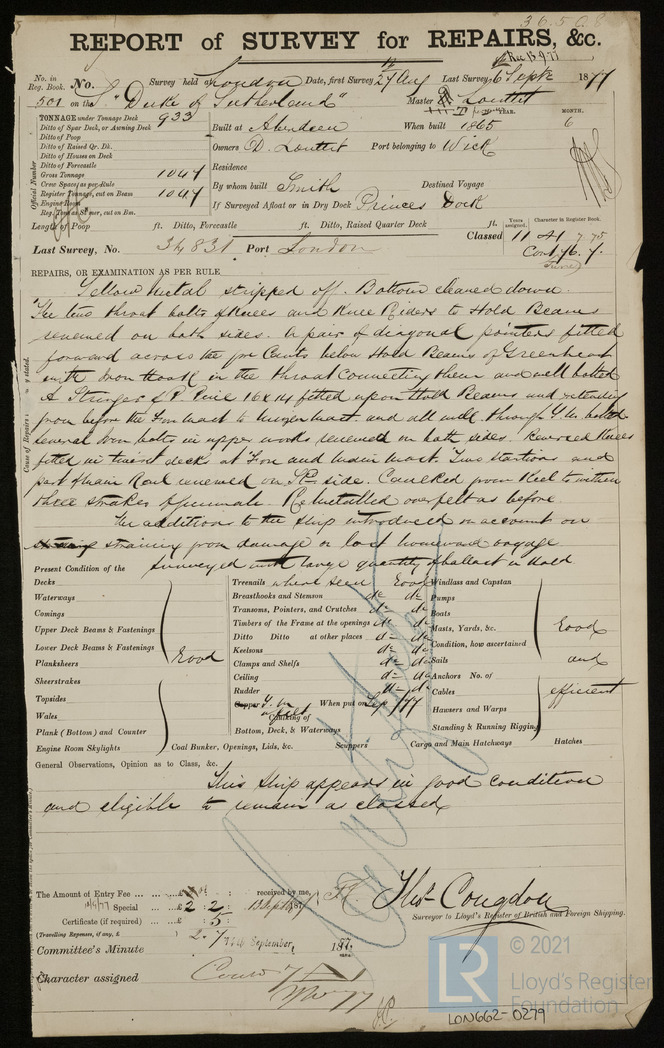 36508
REPORT of SURVEY for REPAIRS, &c.
Rec 13.9.77
No. in Reg. Book. No. Survey held at London Date, first Survey 27 Aug Last Survey 6 Sept 1877
501 on the S. "Duke of Sutherland" Master Louttit
TONNAGE under Tonnage Deck 933
YEAR. MONTH.
Ditto of Spar Deck, or Awning Deck
Built at Aberdeen When built 1865 6
Ditto of Poop
Ditto of Raised Qr. Dk.
Owners D. Louttit Port belonging to Wick
Ditto of Houses on Deck
Ditto of Forecastle
Gross Tonnage 1047
Residence
Crew Space as per Rule
Register Tonnage, cut on Beam 1047
By whom built Smith Destined Voyage
Engine Room
Reg. Tons as Stmer, cut on Bm.
If Surveyed Afloat or in Dry Dock Princes Dock
Official Number
Length of Poop ft. Ditto, Forecastle ft. Ditto, Raised Quarter Deck ft.
Years assigned. Character in Register Book.
Classed 11 A1 7 75
Cont 76. 7.
Last Survey, No. 34831 Port London
REPAIRS, OR EXAMINATION AS PER RULE
Yellow Metal stripped off. Bottom cleaned down.
The two throat bolts of Knees and Knee Riders to Hold Beams
renewed on both sides. A pair of diagonal pointers fitted
forward across the fore Cants below Hold Beams of Greenheart
with Iron Hook in the throat connecting them and well bolted
A Stringer of P. Pine 16 x 14 fitted upon Hold Beams and extending
from before the Fore mast to mizen mast. and all well through Y.M. bolted
several Iron bolts in upper works renewed on both sides. Renewed Knees
fitted in tween decks at Fore and Main Mast. Two stantions and
part of Main Rail renewed on Sd side. Caulked from Keel to within
three strakes of gunwale. Remetalled over felt as before
The additions to the ship introduced on account on
straining from damage on last homeward voyage
Surveyed with large quantity of ballast in Hold
Cause of Repairs
Present Condition of the
Decks
Waterways
Comings
Upper Deck Beams & Fastenings
Lower Deck Beams & Fastenings
Planksheers
Sheerstrakes
Topsides
Wales
Plank (Bottom) and Counter
Engine Room Skylights
Good
Treenails where seen Good
Breasthooks and Stemson do do
Transoms, Pointers, and Crutches do do
Timbers of the Frame at the openings do do
Ditto Ditto at other places do do
Keelsons do do
Clamps and Shelfs do do
Ceiling do do
Rudder do do
Copper Y.M. on felt When put on Sep/77
Caulking of
Bottom, Deck, & Waterways
Coal Bunker, Openings, Lids, &c. Scuppers Cargo and Main Hatchways Hatches
Windlass and Capstan
Pumps
Boats
Masts, Yards, &c.
Condition, how ascertained
Sails
Anchors No. of
Cables
Hawsers and Warps
Standing & Running Rigging
Good
and
efficient
General Observations, Opinion as to Class, &c.
This Ship appears in good condition
and eligible to remain as classed
The Amount of Entry Fee £ received by me,
Special £ 2 : 2 : 13 Sept 1877
Certificate (if required) : 5 :
(Travelling Expenses, if any, £ 2.7
Thos Congdon
Surveyor to Lloyd's Register of British and Foreign Shipping.
Committee's Minute 14th September, 1877
Character assigned Cont 7/77
LR © 2021
Lloyd's Register
Foundation
LON662-0279